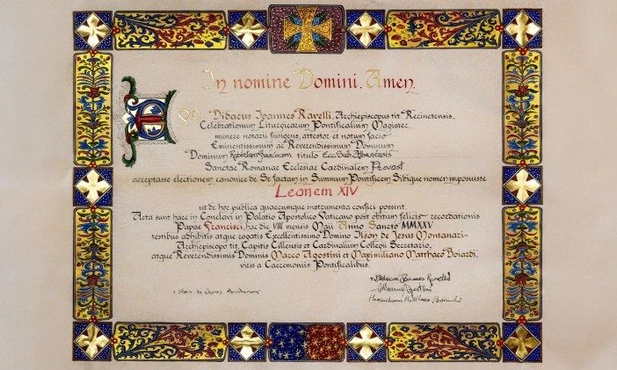 In nomine Domini. Amen
Ego Didacus Ioannes Ravelli, Archiepiscopus tit. Recinetensis,
Celebrationum Liturgicarum Pontificalium Magister,
munere notarii fungens, attestor et notum facio
Eminentissimum ac Reverendissimum Dominum
Dominum titulo Ecc. Sub. Albanensis
Sanctae Romanae Ecclesiae Cardinalem Prevost
acceptasse electionem canonice de Se factam in Summum Pontificem Sibique nomen imposuisse
Leonem XIV
ut de hoc publica quaecumque instrumenta confici possint
Acta sunt haec in Conclavi in Palatio Apostolico Vaticano post obitum felicis recordationis
Papae Francisci, hac die VIII mensis Maii Anno Sancto MMXXV
testibus adhibitis atque rogatis Excellentissimo Domino Ilson de Jesus Montanari
Archiepiscopo tit. Capitis Cillensis et Cardinalium Collegii Secretario,
atque Reverendissimis Dominis Marco Agostini et Maximiliano Matthaeo Boiardi,
viris a Caeremoniis Pontificalibus.